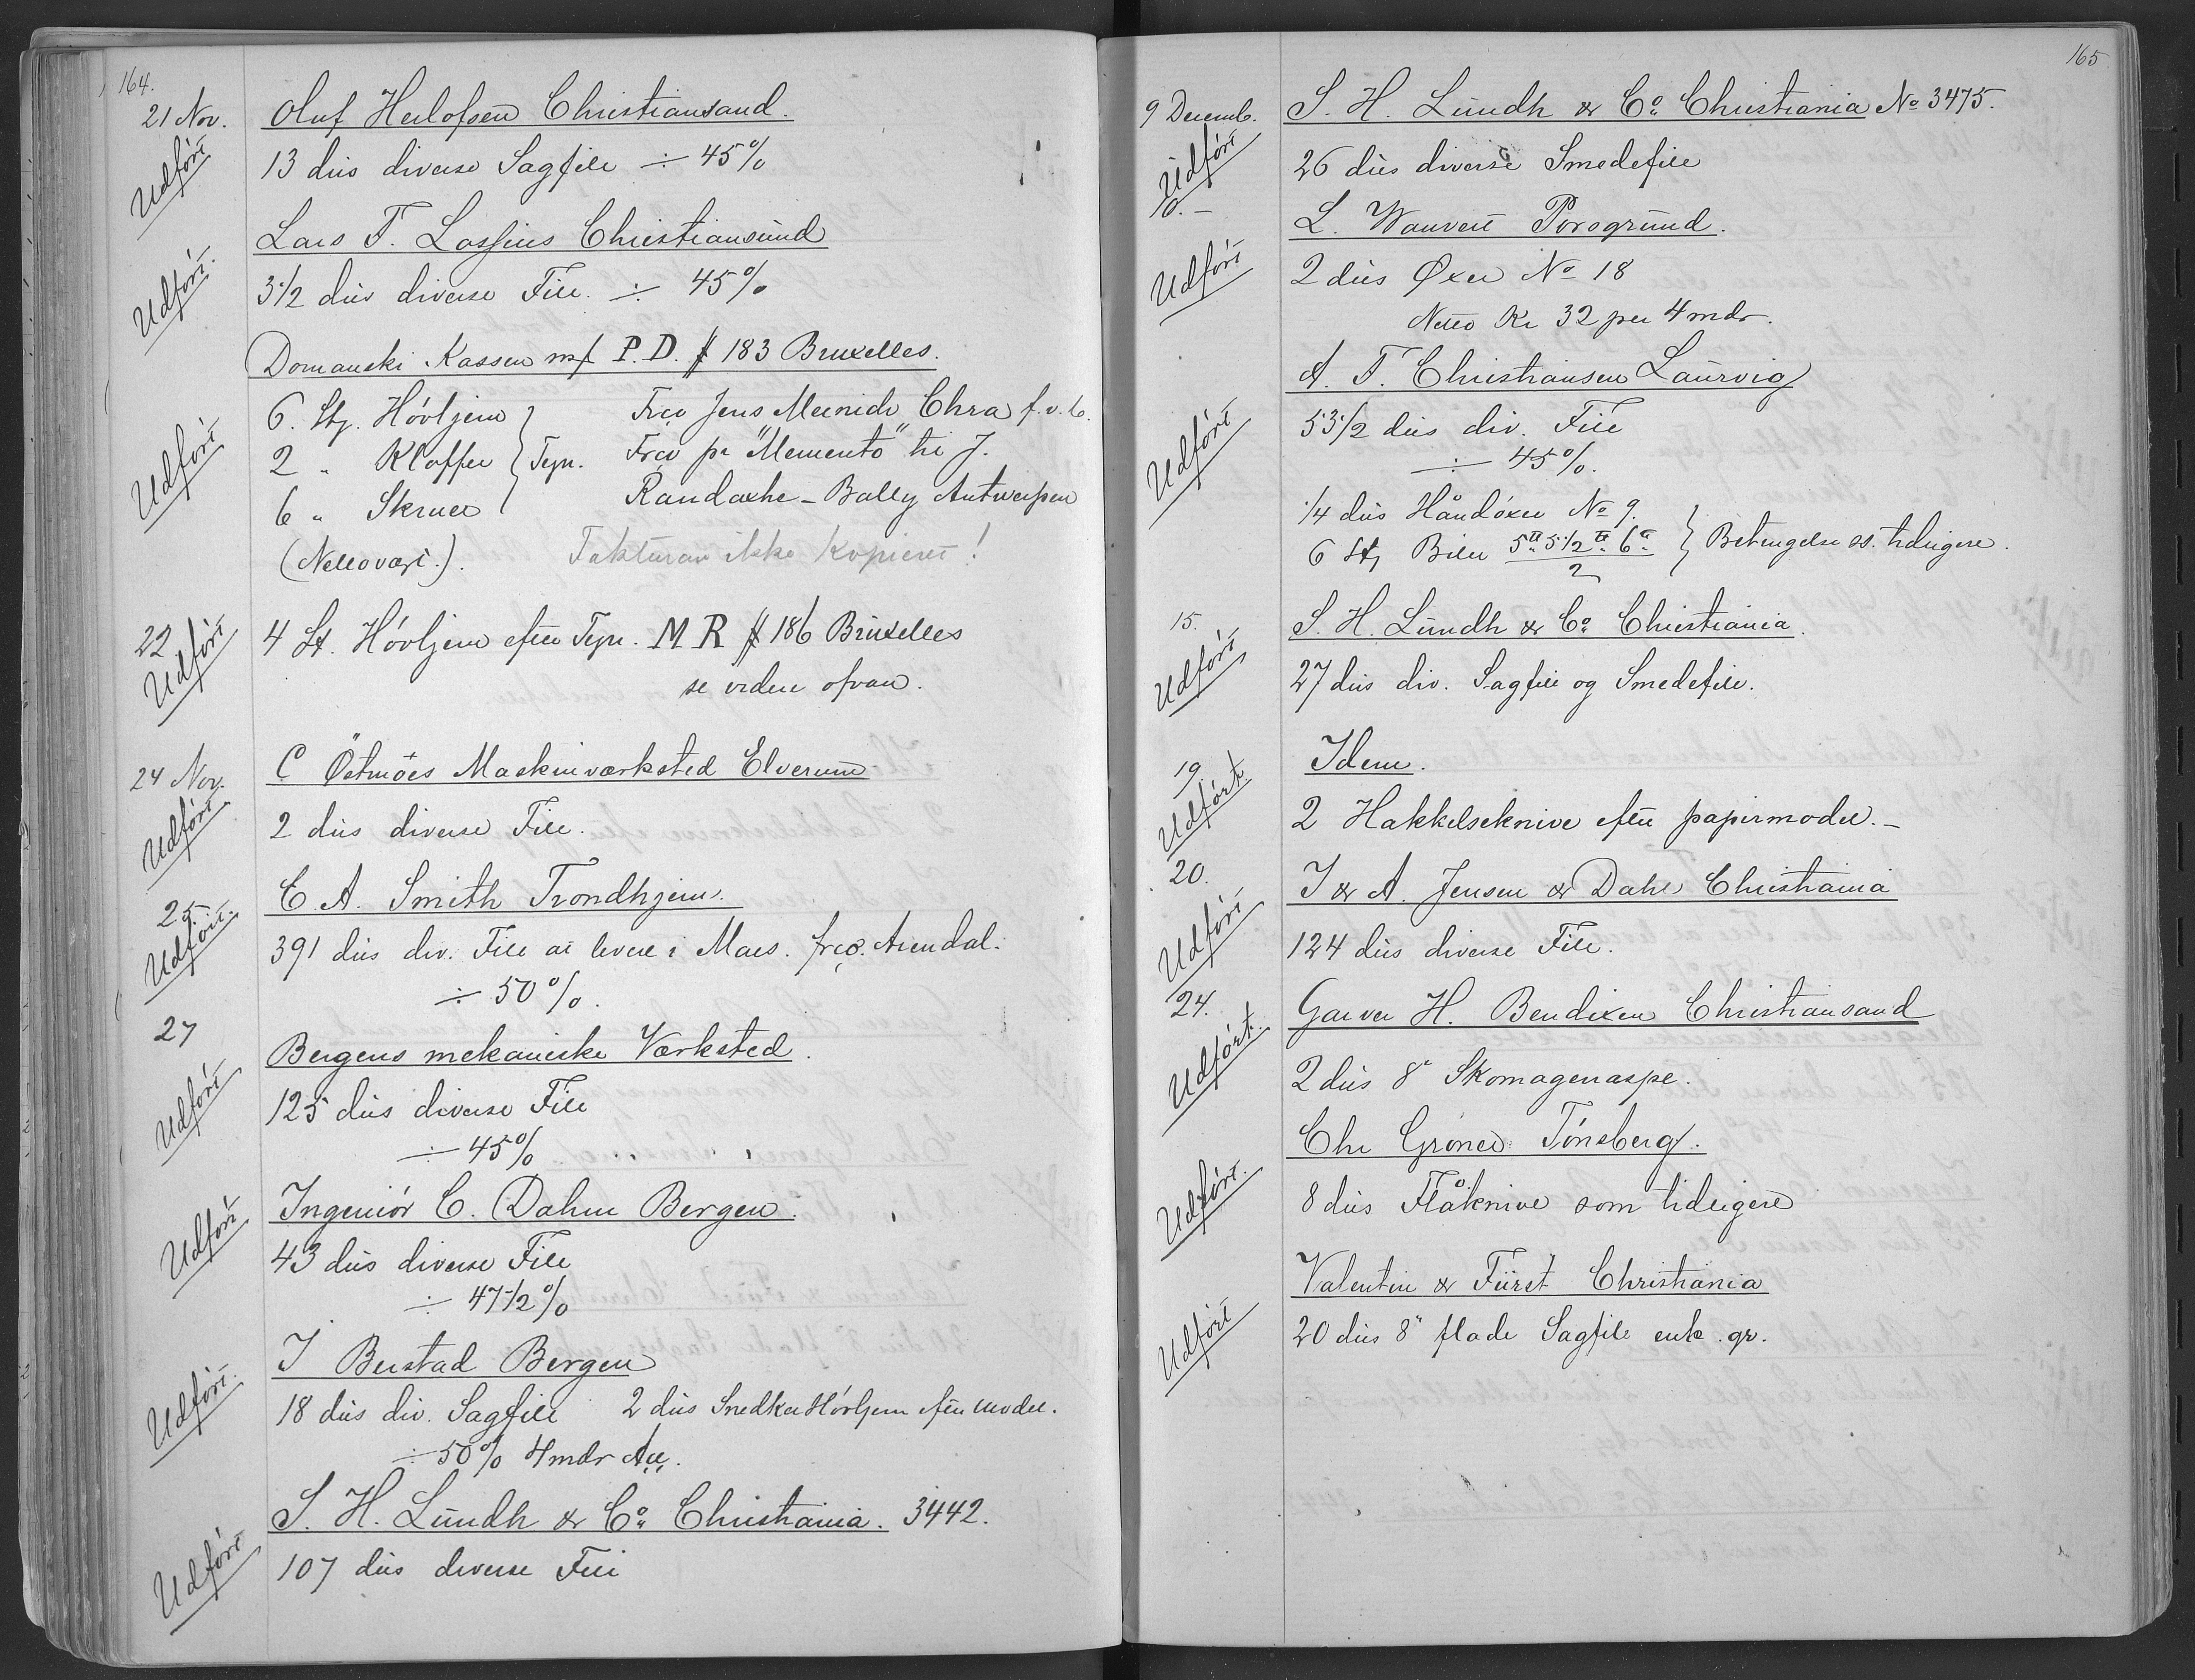 164.
21 Nov. Oluf Herlofsen Christiansand.
Udført 13 dus diverse Sagfile ÷ 45%
Lars T. Lossius Christiansund
Udført. 3 1/2 dus diverse File. ÷ 45%
Domanski Kassen m/ P.D. # 183 Bruxelles.
6. Stj. Høvljern } Frco Jens Meinich Chra f.v.b.
Udført 2 " Kloffer } Tegn. Frco pr "Memento" til J.
6 " Skruer } Randaxhe - Bally Antwerpen
(Nettovægt.). Fakturan ikke kopieret!
22 Udført 4 St. Høvljern efter Tegn. M R # 186 Bruxelles
se videre ofvan.
24 Nov. C Östmoes Maskinværksted Elverum
Udført. 2 dus diverse File.
25. C. A. Smith Trondhjem.
Udført. 391 dus div. File at levere i Mars. frco. Arendal.
÷ 50%.
27 Bergens mekaniske Værksted.
Udført 125 dus diverse File
÷ 45%
Ingeniør C. Dahm Bergen.
Udført 43 dus diverse File
÷ 47 1/2 %
J Berstad Bergen
Udført. 18 dus div. Sagfile 2 dus Snedker Høvljern efter model.
÷ 50% 4 mdr
S. H. Lundh & Co. Christiania. 3442.
Udført 107 dus diverse File
165
9 Decemb. S. H. Lundh & Co. Christiania No 3475.
Udført 26 dus diverse Smedefile
10. - L. Wauvert Porsgrund.
Udført 2 dus Øxer No 18
Netto Kr 32 per 4 mdr.
A. F. Christiansen Laurvig
Udført 53 1/2 dus div. File
÷ 45%.
1/4 dus Håndöxer No 9. }
6 St, Biler 5" 5 1/2" 6" / 2 } Betingelse ss. tidligere.
15. S. H. Lundh & Co. Christiania.
Udført 27 dus div. Sagfile og Smedefile.
19. Idem.
Udført. 2 Hakkelseknive efter papirmodel. -
20. J & A. Jensen & Dahl Christiania
Udført 124 dus diverse File.
24. Garver H. Bendixen Christiansand
Udført. 2 dus 8" Skomagerraspe.
Chr Grøner Tønsberg.
Udført. 8 dus Flåknive som tidligere
Valentin & Fürst Christiania
Udført 20 dus 8" flade Sagfile enk. gr.